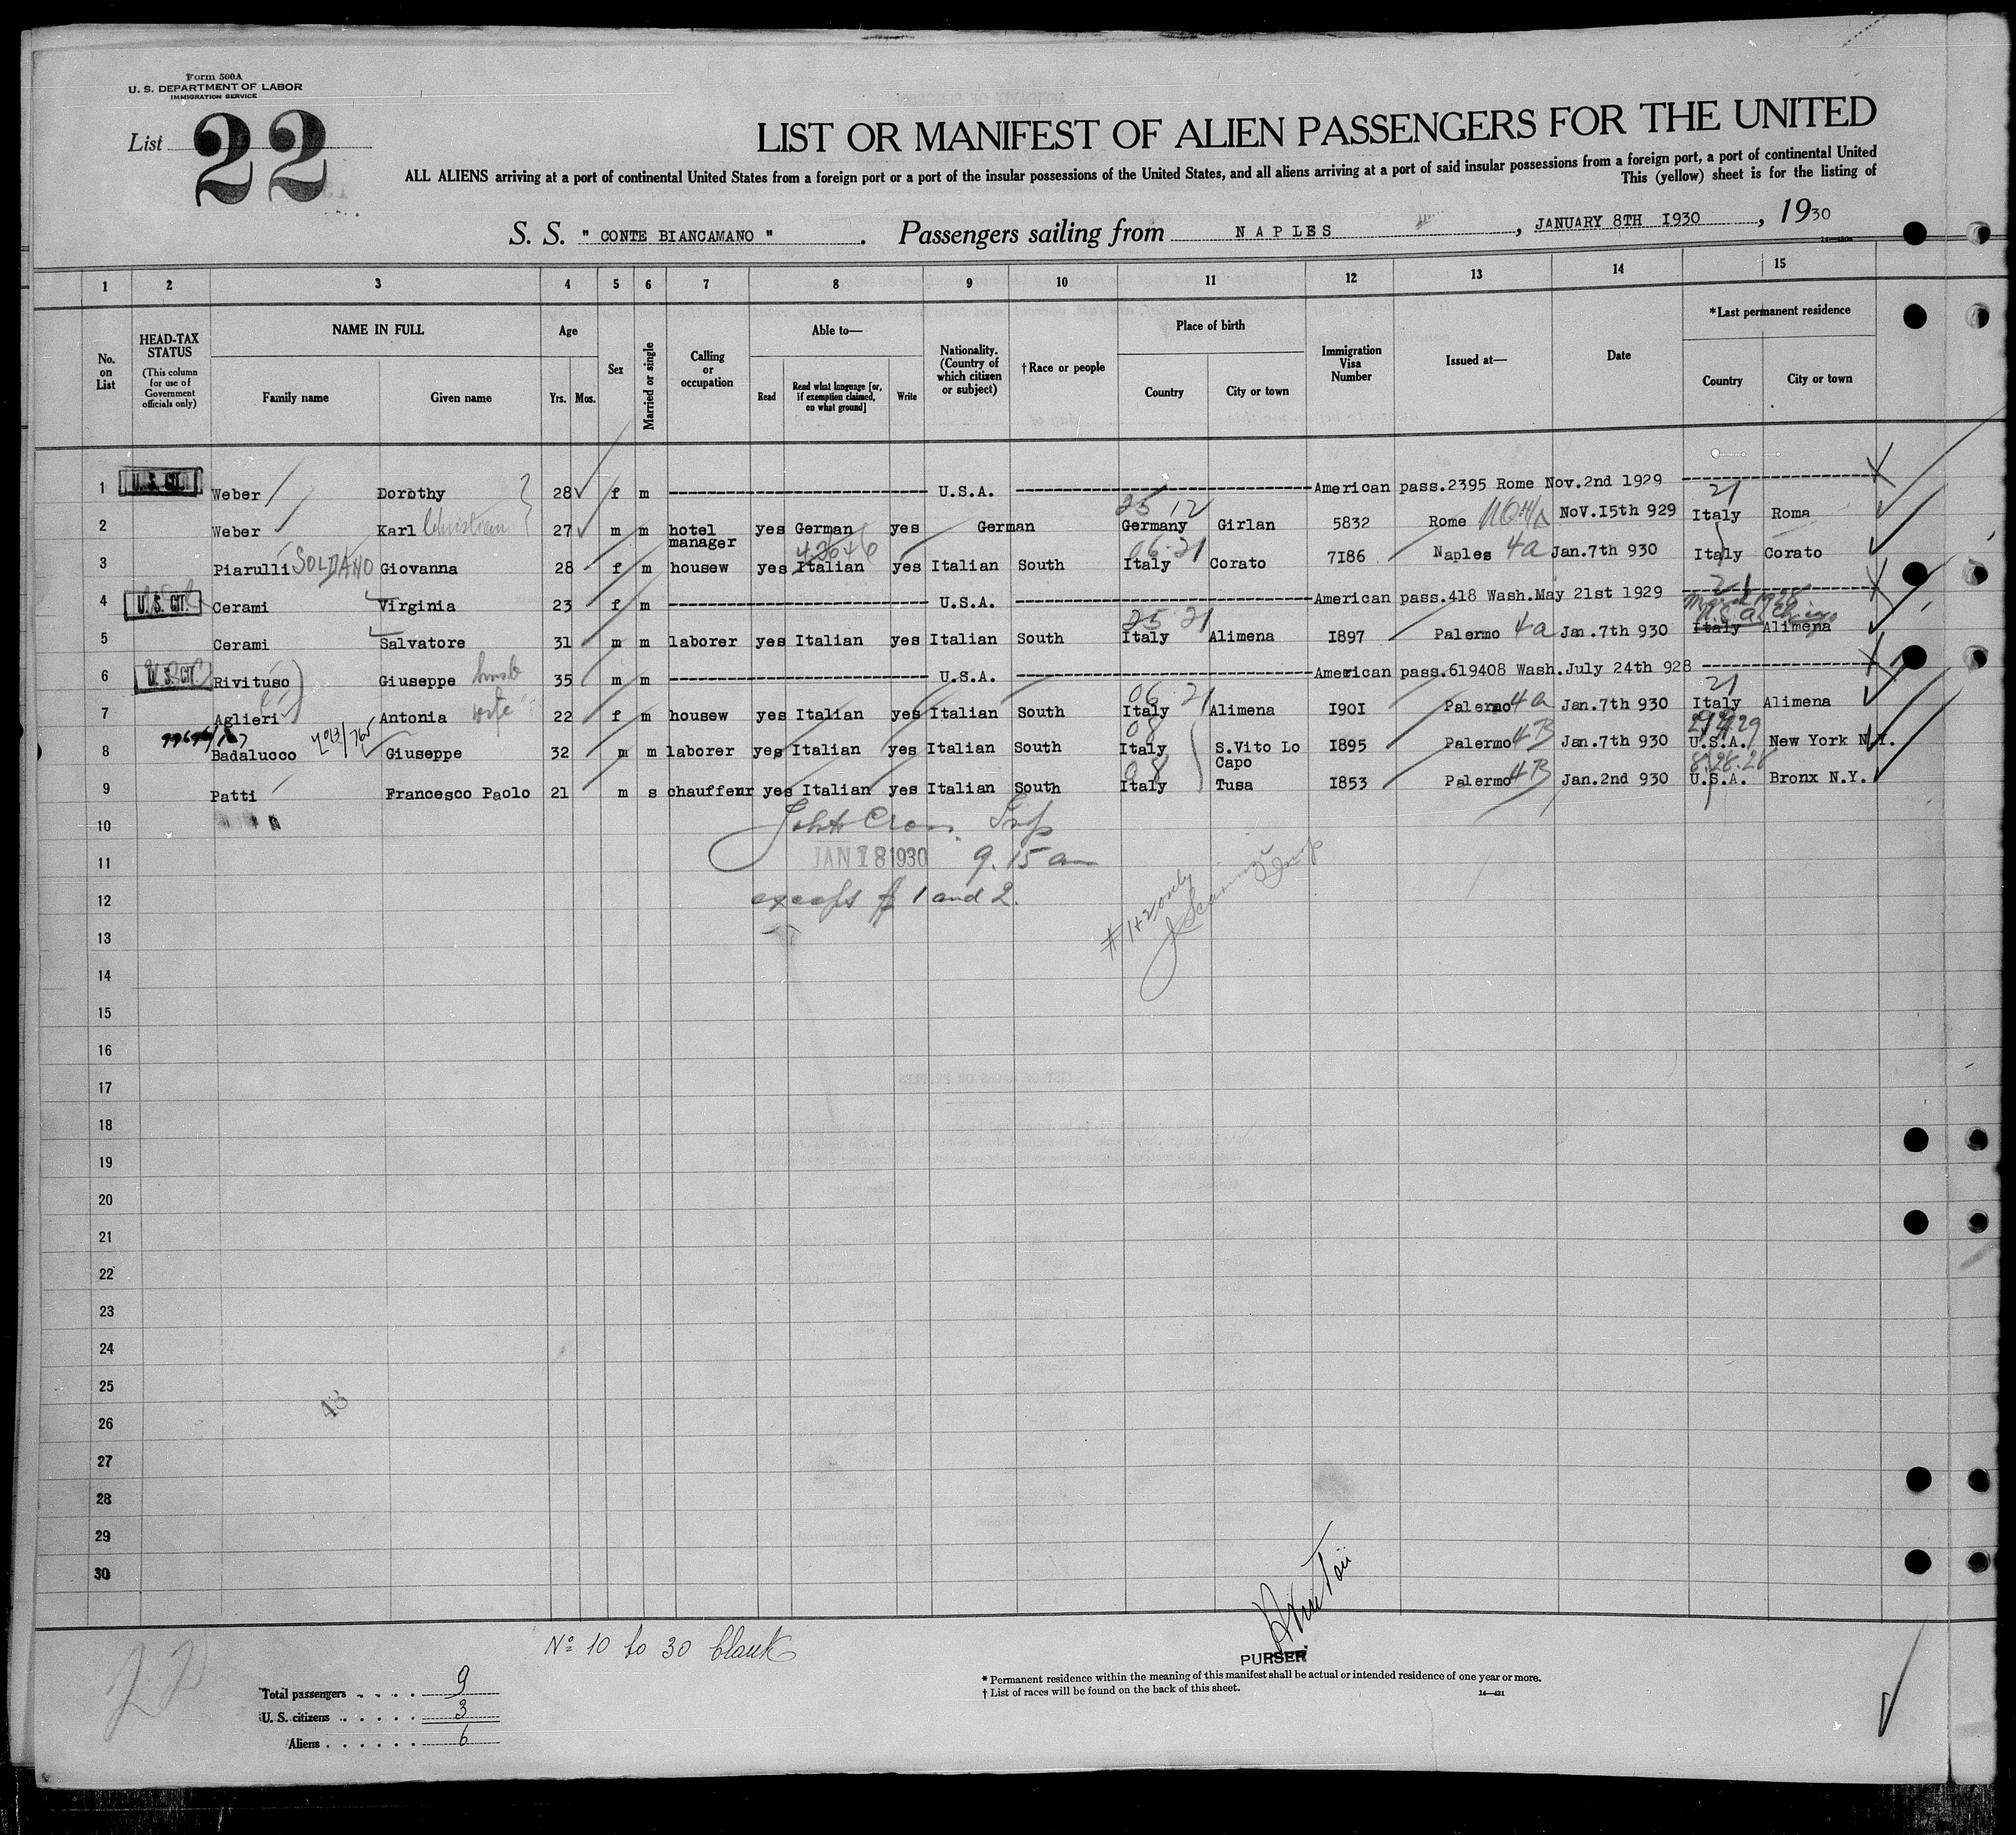 Form 500A
U. S. DEPARTMENT OF LABOR
IMMIGRATION SERVICE
List 22
LIST OR MANIFEST OF ALIEN PASSENGERS FOR THE UNITED
ALL ALIENS arriving at a port of continental United States from a foreign port or a port of the insular possessions of the United States, and all aliens arriving at a port of said insular possessions from a foreign port, a port of continental United
This (yellow) sheet is for the listing of
S. S. " CONTE BIANCAMANO " . Passengers sailing from NAPLES , JANUARY 8TH I930 , 1930
1 2 3 4 5 6 7 8 9 10 11 12 13 14 15
No. on List
HEAD-TAX STATUS (This column for use of Government officials only)
NAME IN FULL Family name Given name
Age Yrs. Mos.
Sex
Married or single
Calling or occupation
Able to— Read Read what language [or, if exemption claimed, on what ground] Write
Nationality. (Country of which citizen or subject)
†Race or people
Place of birth Country City or town
Immigration Visa Number
Issued at—
Date
*Last permanent residence Country City or town
1 U.S. CIT. Weber Dorothy 28 f m U.S.A. American pass.2395 Rome Nov.2nd 1929
25 12 21
2 Weber Karl Christian 27 m m hotel manager yes German yes German Germany Girlan 5832 Rome Nov.I5th 929 Italy Roma
06 21
3 Piarulli SOLDANO Giovanna 28 f m housew yes Italian yes Italian South Italy Corato 7I86 Naples 4a Jan.7th 930 Italy Corato
4 U.S. CIT. Cerami Virginia 23 f m U.S.A. American pass.418 Wash.May 21st 1929
25 21
5 Cerami Salvatore 31 m m laborer yes Italian yes Italian South Italy Alimena I897 Palermo 4a Jan.7th 930 Italy Alimena
6 U.S. CIT. Rivituso Giuseppe husb 35 m m U.S.A. American pass.619408 Wash.July 24th 928
06 21 21
7 Aglieri Antonia wife 22 f m housew yes Italian yes Italian South Italy Alimena I90I Palermo 4a Jan.7th 930 Italy Alimena
08
8 Badalucco Giuseppe 32 m m laborer yes Italian yes Italian South Italy S.Vito Lo Capo I895 Palermo 4B Jan.7th 930 U.S.A. New York N.Y.
08 8.28.28
9 Patti Francesco Paolo 21 m s chauffeur yes Italian yes Italian South Italy Tusa I853 Palermo 4B Jan.2nd 930 U.S.A. Bronx N.Y.
10
11 JAN 18 1930 9.15 am
12 except # 1 and 2.
#1+2 only
13
14
15
16
17
18
19
20
21
22
23
24
25
43
26
27
28
29
30
No 10 to 30 blank
PURSER
22
* Permanent residence within the meaning of this manifest shall be actual or intended residence of one year or more.
† List of races will be found on the back of this sheet.
Total passengers . . . . 9
U. S. citizens . . . . . 3
Aliens . . . . . . 6